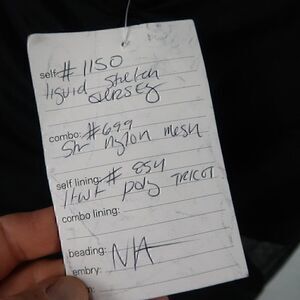 self: # 1150
liquid stretch
Jersey
combo: #699
Str nylon mesh
self lining: # 854
ltwt poly TRICOT
combo lining:
beading:
N/A
embry: